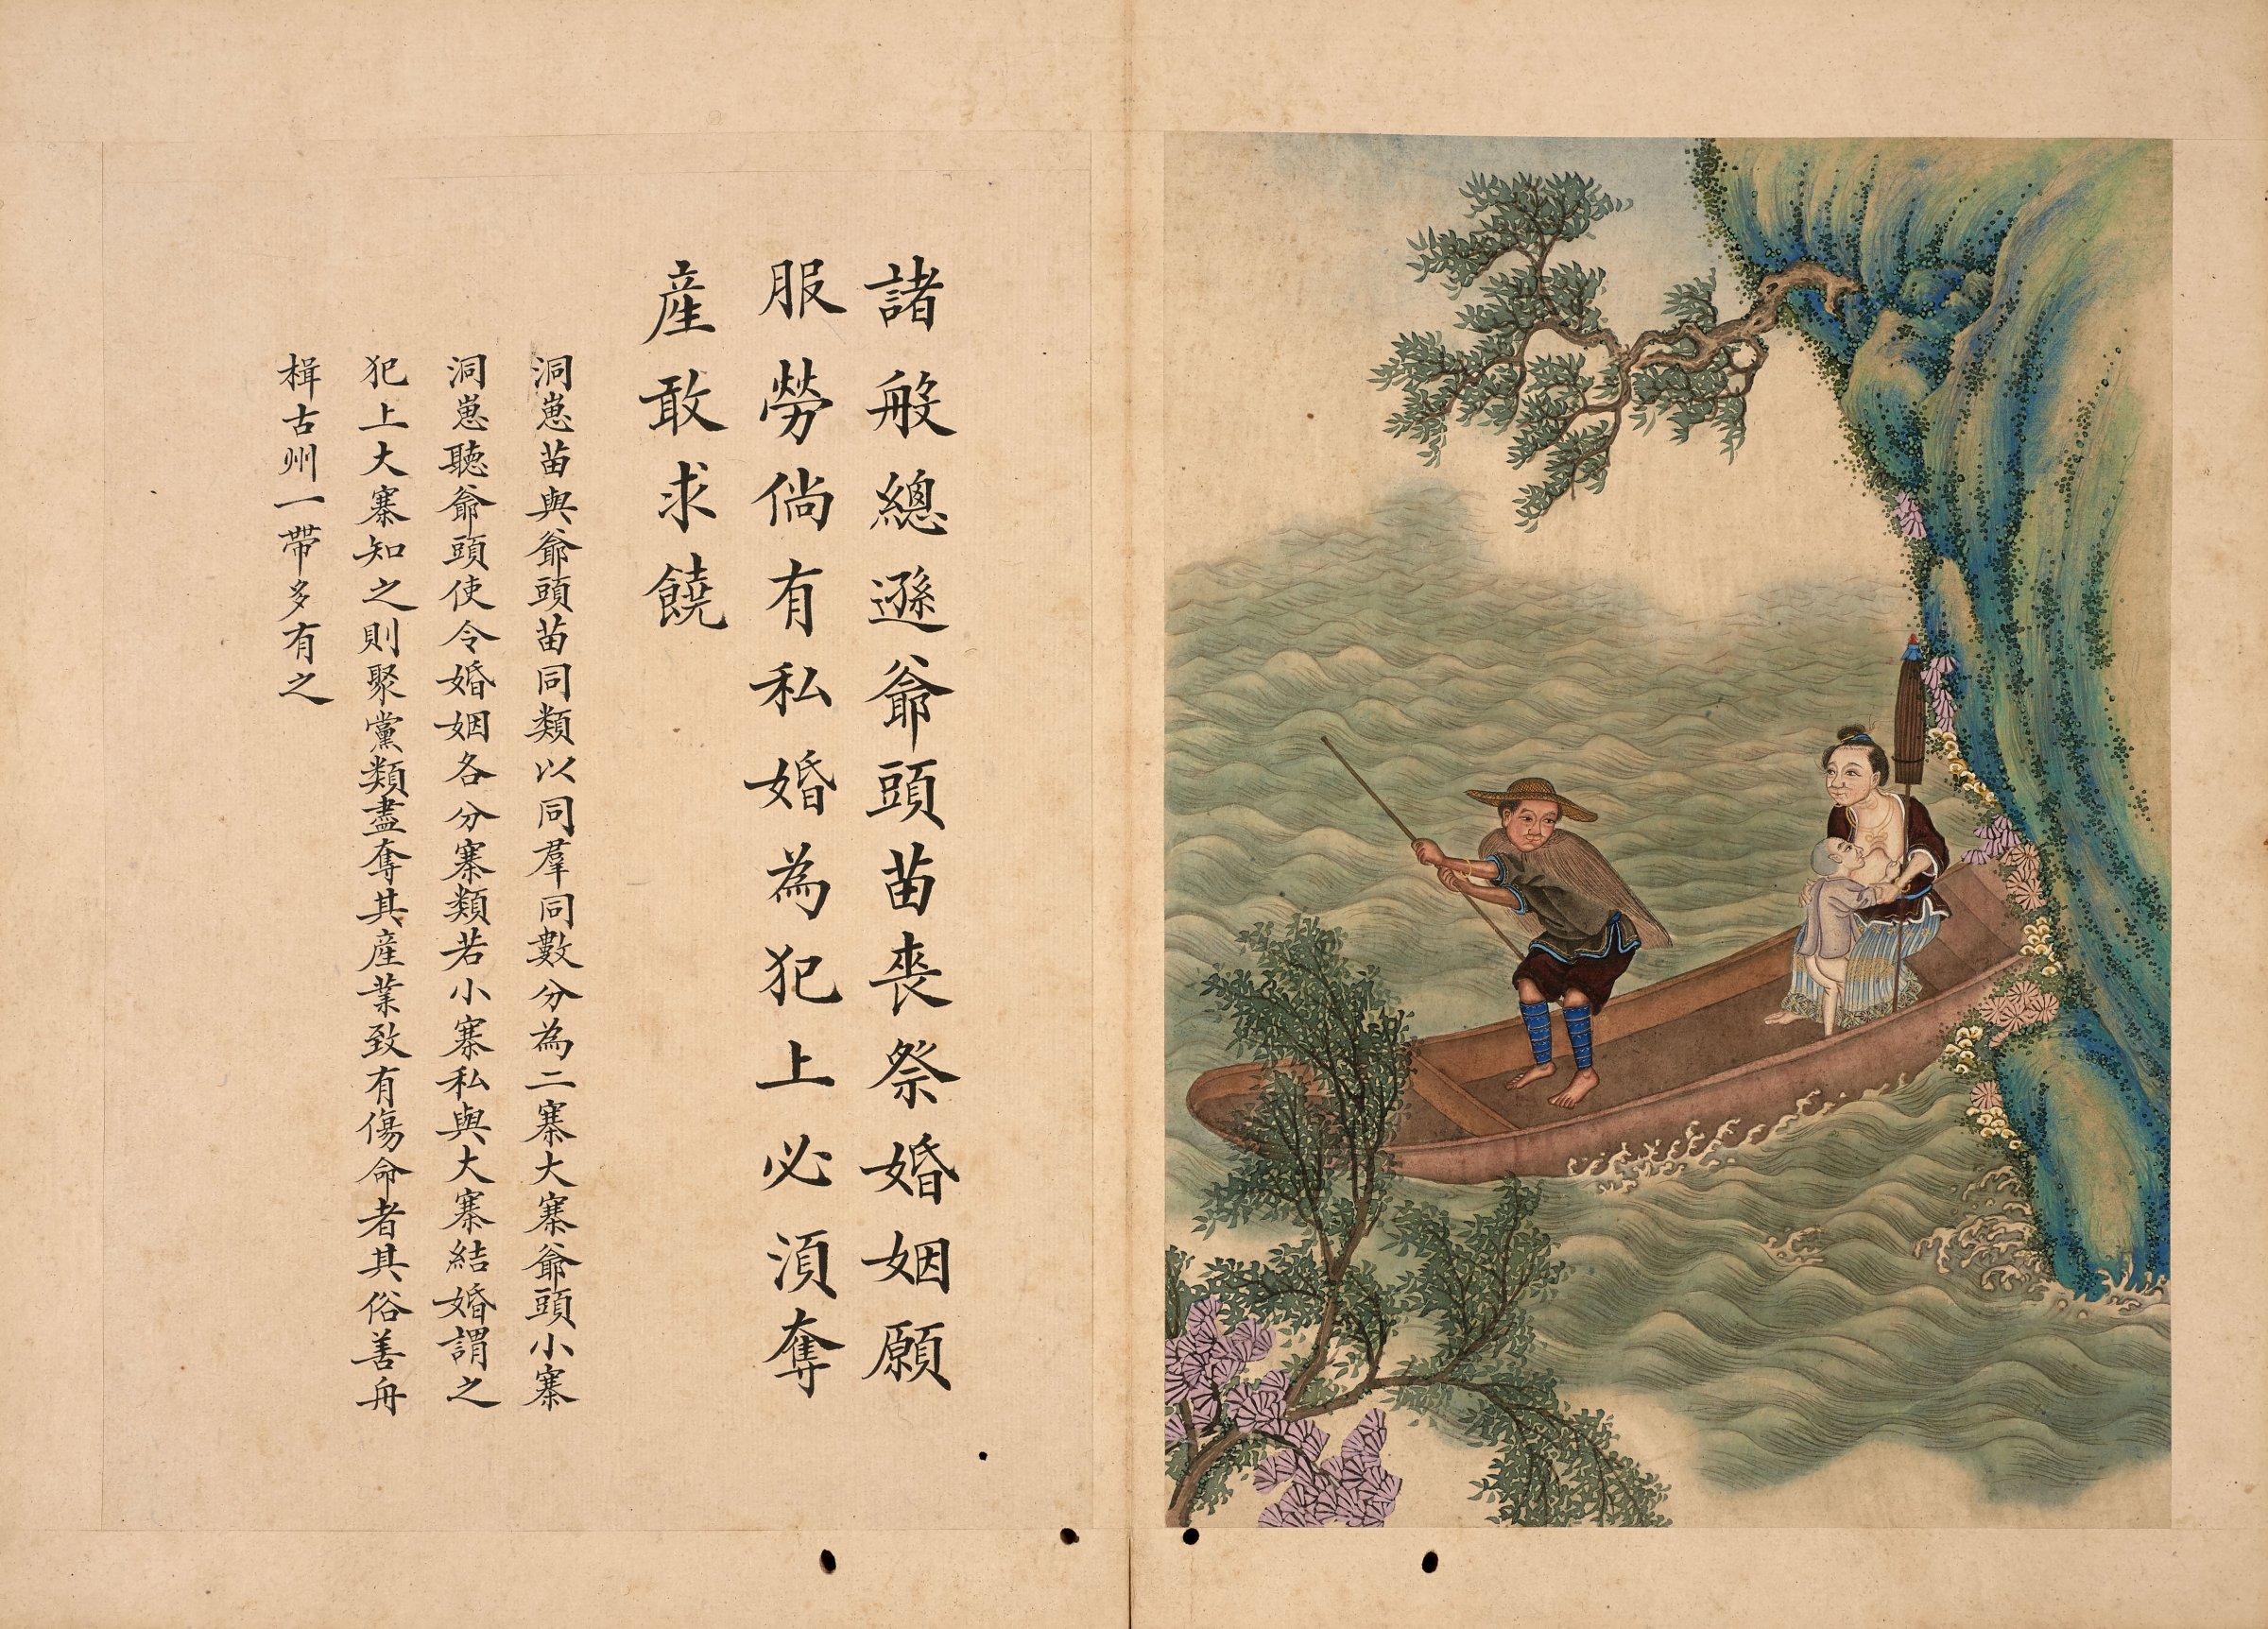 諸般總遜爺頭苗喪祭婚姻願
服勞倘有私婚為犯上必湏奪
産敢求饒
洞崽苗與爺頭苗同類以同羣同數分為二寨大寨爺頭小寨
洞崽聽爺頭使令婚姻各分寨類若小寨私與大寨結婚謂之
犯上大寨知之則聚黨類盡奪其産業致有傷命者其俗善舟
楫古州一帶多有之